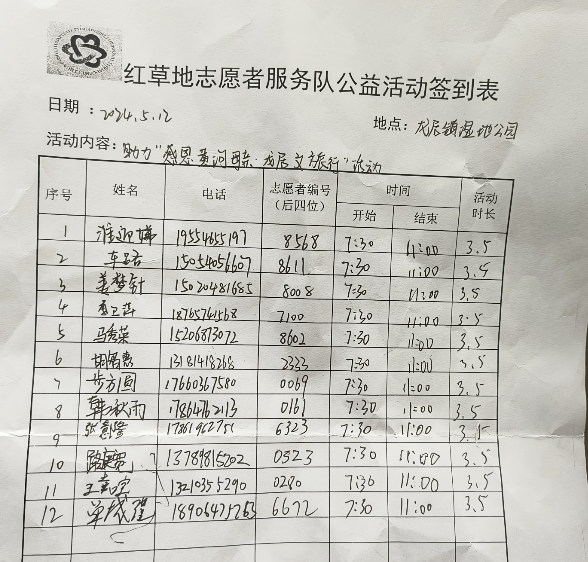 红草地志愿者服务队公益活动签到表
日期：2024.5.12
地点：龙居镇湿地公园
活动内容：助力"感恩黄河母亲·龙居文旅行"活动
序号 姓名 电话 志愿者编号（后四位） 时间 开始 结束 活动时长
1 19554655197 8568 7:30 11:00 3.5
2 15054056607 8611 7:30 11:00 3.5
3 姜梦针 15020481685 8008 7:30 11:00 3.5
4 18765761568 7100 7:30 11:00 3.5
5 马秀荣 15206873072 8602 7:30 11:00 3.5
6 13181418268 2333 7:30 11:00 3.5
7 步方圆 17660367580 0069 7:30 11:00 3.5
8 韩秋雨 17864762113 0161 7:30 11:00 3.5
9 6323 7:30 11:00 3.5
10 13789815202 0523 7:30 11:00 3.5
11 13210355290 0280 7:30 11:00 3.5
12 6672 7:30 11:00 3.5